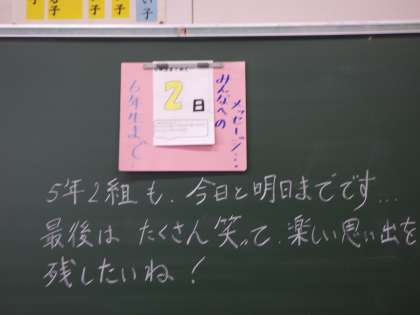 ６年生まで
2日
みんなへの
メッセージ…
5年2組も、今日と明日までです…
最後は たくさん笑って、楽しい思い出を
残したいね！